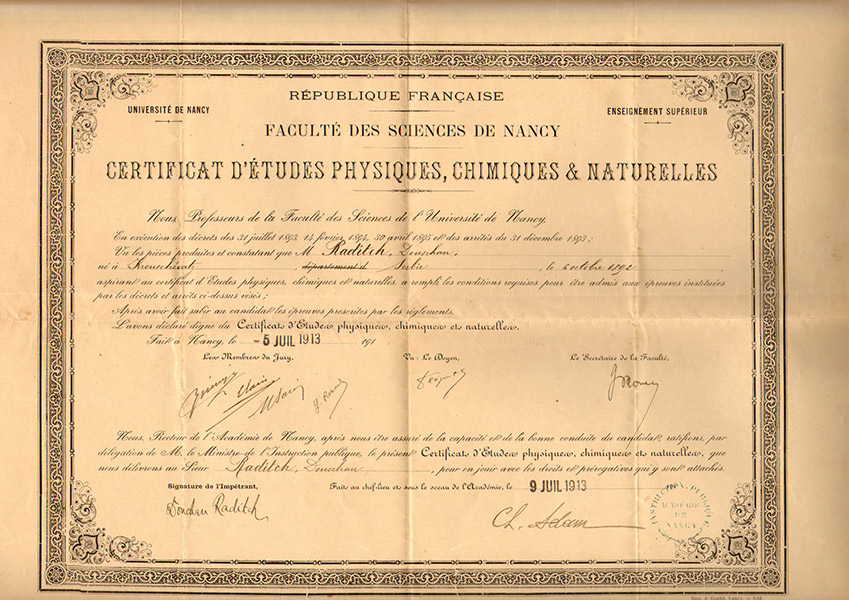 RÉPUBLIQUE FRANÇAISE
UNIVERSITÉ DE NANCY
ENSEIGNEMENT SUPÉRIEUR
FACULTÉ DES SCIENCES DE NANCY
CERTIFICAT D'ÉTUDES PHYSIQUES, CHIMIQUES & NATURELLES
Nous Professeurs de la Faculté des Sciences de l'Université de Nancy,
En exécution des décrets des 31 juillet 1893, 14 février 1894, 30 avril 1895 et des arrêtés du 31 décembre 1893;
Vu les pièces produites et constatant que M Raditch, Douschan,
né à département d Serbie, le 6 octobre 1892,
aspirant au certificat d'Etudes physiques, chimiques et naturelles, a rempli les conditions requises pour être admis aux épreuves instituées
par les décrets et arrêtés ci-dessus visés;
Après avoir fait subir au candidat les épreuves prescrites par les règlements,
L'avons déclaré digne du Certificat d'Etudes physiques, chimiques et naturelles.
Fait à Nancy, le -5 JUIL 1913 191
Les Membres du Jury,
Vu: Le Doyen,
Le Secrétaire de la Faculté,
Nous, Recteur de l'Académie de Nancy, après nous être assuré de la capacité et de la bonne conduite du candidat, ratifions, par
délégation de M. le Ministre de l'Instruction publique, le présent Certificat d'Etudes physiques, chimiques et naturelles, que
nous délivrons au Sieur Raditch, Douschan, pour en jouir avec les droits et prérogatives qui y sont attachés.
Signature de l'Impétrant,
Fait au chef-lieu et sous le sceau de l'Académie, le 9 JUIL 1913
Douchan Raditch
Ch. Adam
INSTRUCTION PUBLIQUE
ACADÉMIE
DE
NANCY